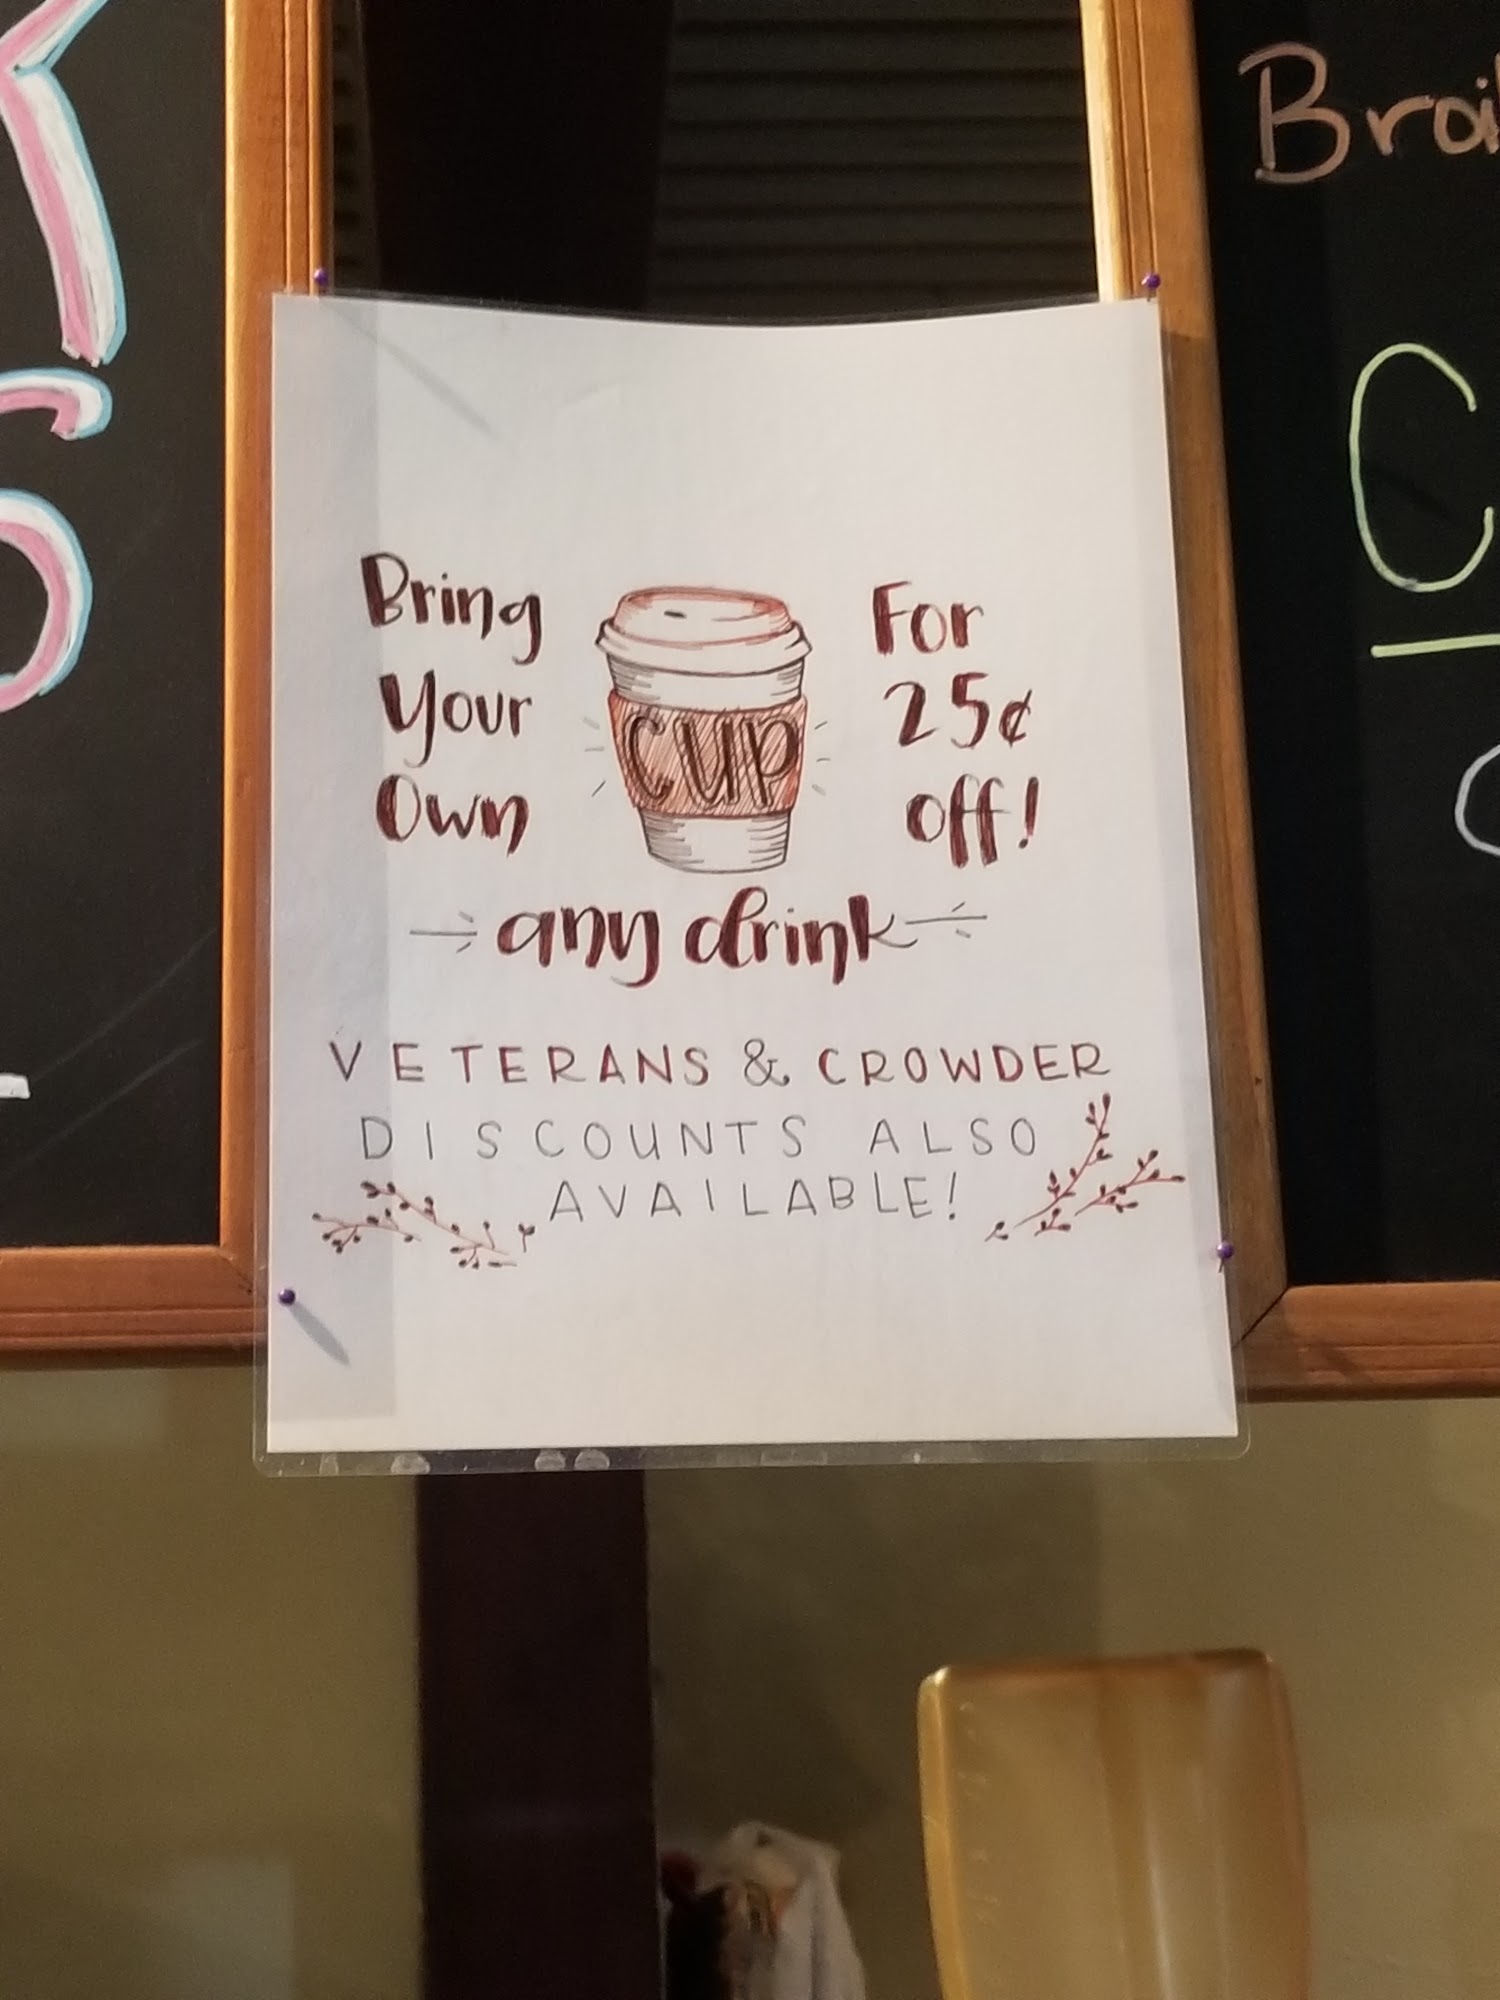 Bring
Your
Own
CUP
For
25¢
off!
any drink
VETERANS & CROWDER
DISCOUNTS ALSO
AVAILABLE!